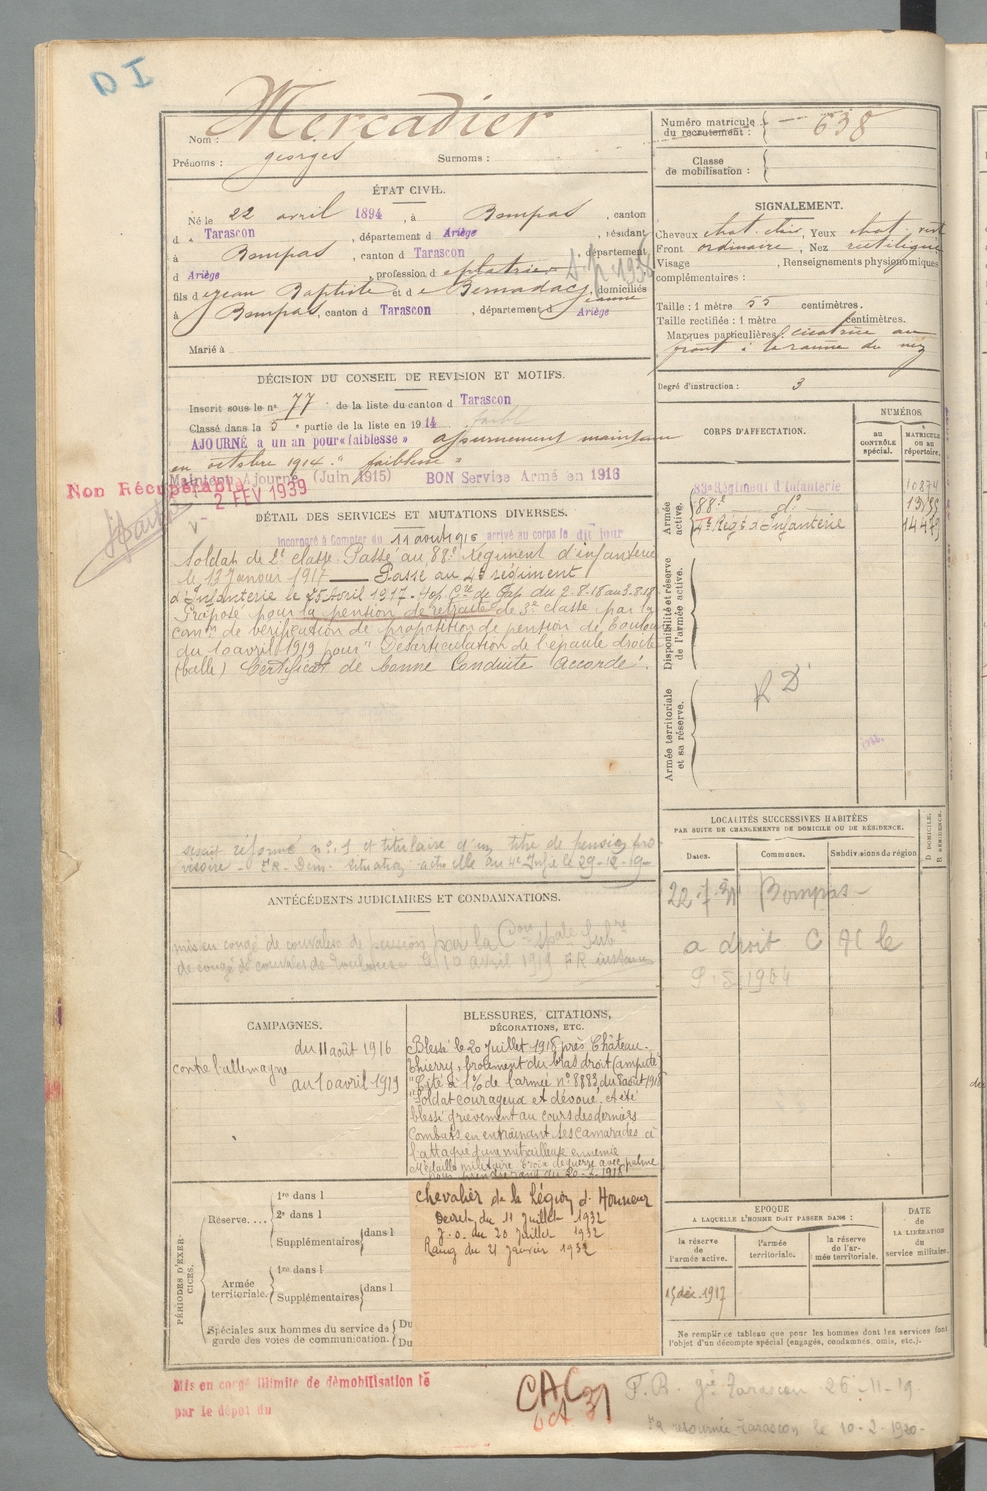 D I
Nom : Mercadier
Prénoms : georges Surnoms :
Numéro matricule du recrutement : 638
Classe de mobilisation :
ÉTAT CIVIL.
Né le 22 avril 1894, à Bompas, canton
d Tarascon, département d Ariège, résidant
à Bompas, canton d Tarascon, département
d Ariège, profession d
fils d e Jean Baptiste et d e Bernadac Jeanne, domiciliés
à Bompas, canton d Tarascon, département d Ariège
Marié à
SIGNALEMENT.
Cheveux chat. clair, Yeux chat. vert
Front ordinaire, Nez rectiligne
Visage , Renseignements physionomiques
complémentaires :
Taille : 1 mètre 55 centimètres.
Taille rectifiée : 1 mètre centimètres.
Marques particulières : cicatrice au
front à la racine du nez
Degré d'instruction : 3
DÉCISION DU CONSEIL DE REVISION ET MOTIFS.
Inscrit sous le n° 77 de la liste du canton d Tarascon
Classé dans la 5e partie de la liste en 1914 faibl
AJOURNÉ à un an pour « faiblesse » ajournement maintenu
en octobre 1914 " faiblesse "
Maintenu Ajourné (Juin 1915) BON Service Armé en 1916
Non Récupérable
2 FEV 1939
DÉTAIL DES SERVICES ET MUTATIONS DIVERSES.
Incorporé à Compter du 11 août 1916 arrivé au corps le dit jour
Soldat de 2e classe. Passé au 88e Régiment d'infanterie
le 13 Janvier 1917 — Passé au 4e régiment
d'Infanterie le 25 Avril 1917. du 2-8-18 au 3-8-18
Proposé pour la pension de retraite de 3e classe par la
de vérification de proposition de pension de Toulouse
du 10 avril 1919 pour " Désarticulation de l'épaule droite
(balle) Certificat de bonne Conduite Accordé.
serait réformé n° 1 et titulaire d'un titre de pension pro
visoire situation actuelle au 4e Infie le 29-12-19
CORPS D'AFFECTATION.
NUMÉROS
AU CONTRÔLE spécial.
MATRICULE OU AU répertoire.
Armée active.
83e Régiment d'Infanterie 10874
88e d°
4e Régt d'Infanterie
Disponibilité et réserve de l'armée active.
R D
Armée territoriale et sa réserve.
LOCALITÉS SUCCESSIVES HABITÉES
PAR SUITE DE CHANGEMENTS DE DOMICILE OU DE RÉSIDENCE.
Dates. Communes. Subdivisions de région D. DOMICILE. R. RÉSIDENCE.
22 7 31 Bompas
a droit C H le
1904
ANTÉCÉDENTS JUDICIAIRES ET CONDAMNATIONS.
mis en congé de convalesc de pension par la Con spale
de congé de convales de Toulouse le 10 avril 1919
CAMPAGNES.
contre l'allemagne
du 11 août 1916
au 10 avril 1919
BLESSURES, CITATIONS,
DÉCORATIONS, ETC.
Blessé le 20 Juillet 1918 près Château-
thierry, broiement du bras droit (amputé)
Cité à l'O/ de l'armée n° 8883 du 8 août 1918
"Soldat courageux et dévoué. A été
blessé grièvement au cours des derniers
combats en entraînant ses camarades à
l'attaque d'une mitrailleuse ennemie
Médaille militaire Croix de guerre avec palme
pour prendre rang du 20-7-1918
Chevalier de la Légion d'Honneur
Decret du 11 Juillet 1932
J. O. du 20 Juillet 1932
Rang du 21 Janvier 1932
PÉRIODES D'EXERCICES.
Réserve.... 1re dans l
2e dans l
Supplémentaires dans l
Armée territoriale. 1re dans l
Supplémentaires dans l
Spéciales aux hommes du service de garde des voies de communication. Du
Du
EPOQUE
A LAQUELLE L'HOMME DOIT PASSER DANS :
la réserve de l'armée active.
l'armée territoriale.
la réserve de l'armée territoriale.
DATE DE LA LIBÉRATION du service militaire.
15 déc. 1917
Ne remplir ce tableau que pour les hommes dont les services font
l'objet d'un décompte spécial (engagés, condamnés, omis, etc.).
Mis en congé illimité de démobilisation le
par le dépôt du
CAC
Oct 31
F. R. gie Tarascon 26-11-19
retournée Tarascon le 10-2-1920